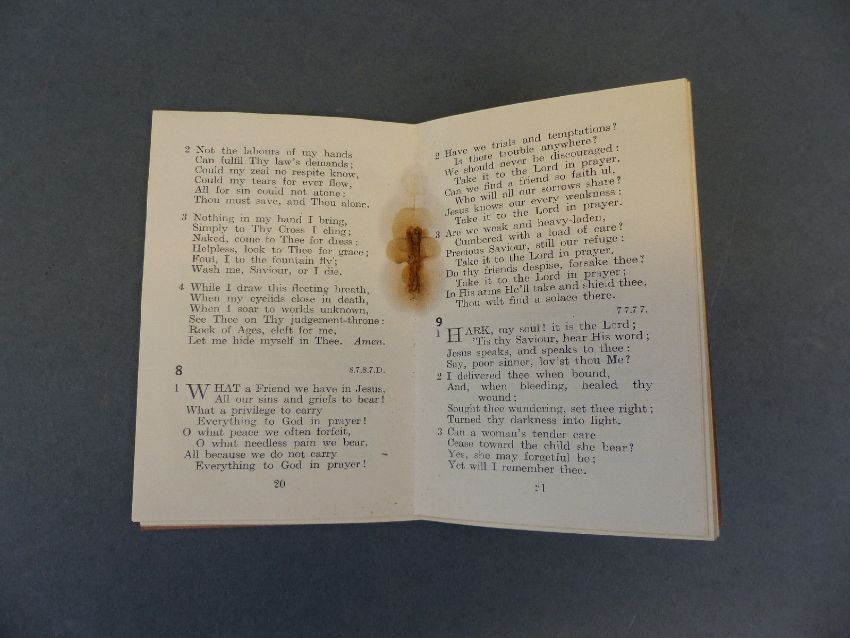 2 Not the labours of my hands
Can fulfil Thy law's demands;
Could my zeal no respite know,
Could my tears for ever flow,
All for sin could not atone:
Thou must save, and Thou alone.
3 Nothing in my hand I bring,
Simply to Thy Cross I cling;
Naked, come to Thee for dress;
Helpless, look to Thee for grace;
Foul, I to the fountain fly;
Wash me, Saviour, or I die.
4 While I draw this fleeting breath,
When my eyelids close in death,
When I soar to worlds unknown,
See Thee on Thy judgement-throne:
Rock of Ages, cleft for me,
Let me hide myself in Thee. Amen.
8 8.7.8.7.D.
1 WHAT a Friend we have in Jesus,
All our sins and griefs to bear!
What a privilege to carry
Everything to God in prayer!
O what peace we often forfeit,
O what needless pain we bear,
All because we do not carry
Everything to God in prayer!
20
2 Have we trials and temptations?
Is there trouble anywhere?
We should never be discouraged:
Take it to the Lord in prayer.
Can we find a friend so faith ul.
Who will all our sorrows share?
Jesus knows our every weakness:
Take it to the Lord in prayer.
3 Are we weak and heavy-laden,
Cumbered with a load of care?
Precious Saviour, still our refuge:
Take it to the Lord in prayer.
Do thy friends despise, forsake thee?
Take it to the Lord in prayer;
In His arms He'll take and shield thee,
Thou wilt find a solace there.
9 7.7.7.7.
1 HARK, my soul! it is the Lord;
'Tis thy Saviour, hear His word;
Jesus speaks, and speaks to thee:
Say, poor sinner, lov'st thou Me?
2 I delivered thee when bound,
And, when bleeding, healed thy
wound;
Sought thee wandering, set thee right;
Turned thy darkness into light.
3 Can a woman's tender care
Cease toward the child she bear?
Yes, she may forgetful be;
Yet will I remember thee.
21